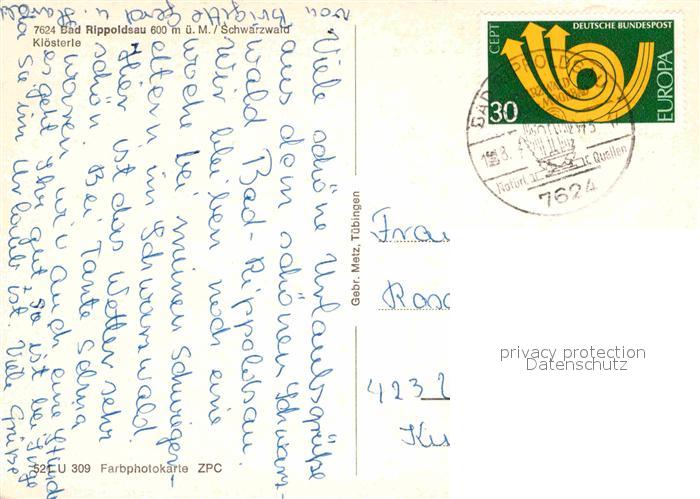 7624 Bad Rippoldsau 600 m ü. M. / Schwarzwald
Klösterle
Viele schöne Urlaubsgrüße
aus dem schönen Schwarz-
wald Bad-Rippoldsau
wir bleiben noch eine
woche bei meinen Schwieger-
eltern im Schwarzwald.
Hier ist das Wetter sehr
schön. Bei Tante
waren wir auch eine Stunde
Ihr geht gut, sie ist bei
da sie im Urlaub ist. Viele Grüße
von Brigitte Gerd u.
Gebr. Metz, Tübingen
521 U 309 Farbphotokarte ZPC
CEPT
DEUTSCHE BUNDESPOST
EUROPA
30
BAD RIPPOLDSAU
Quellen
7624
Frau
Rosa
4232
privacy protection
Datenschutz